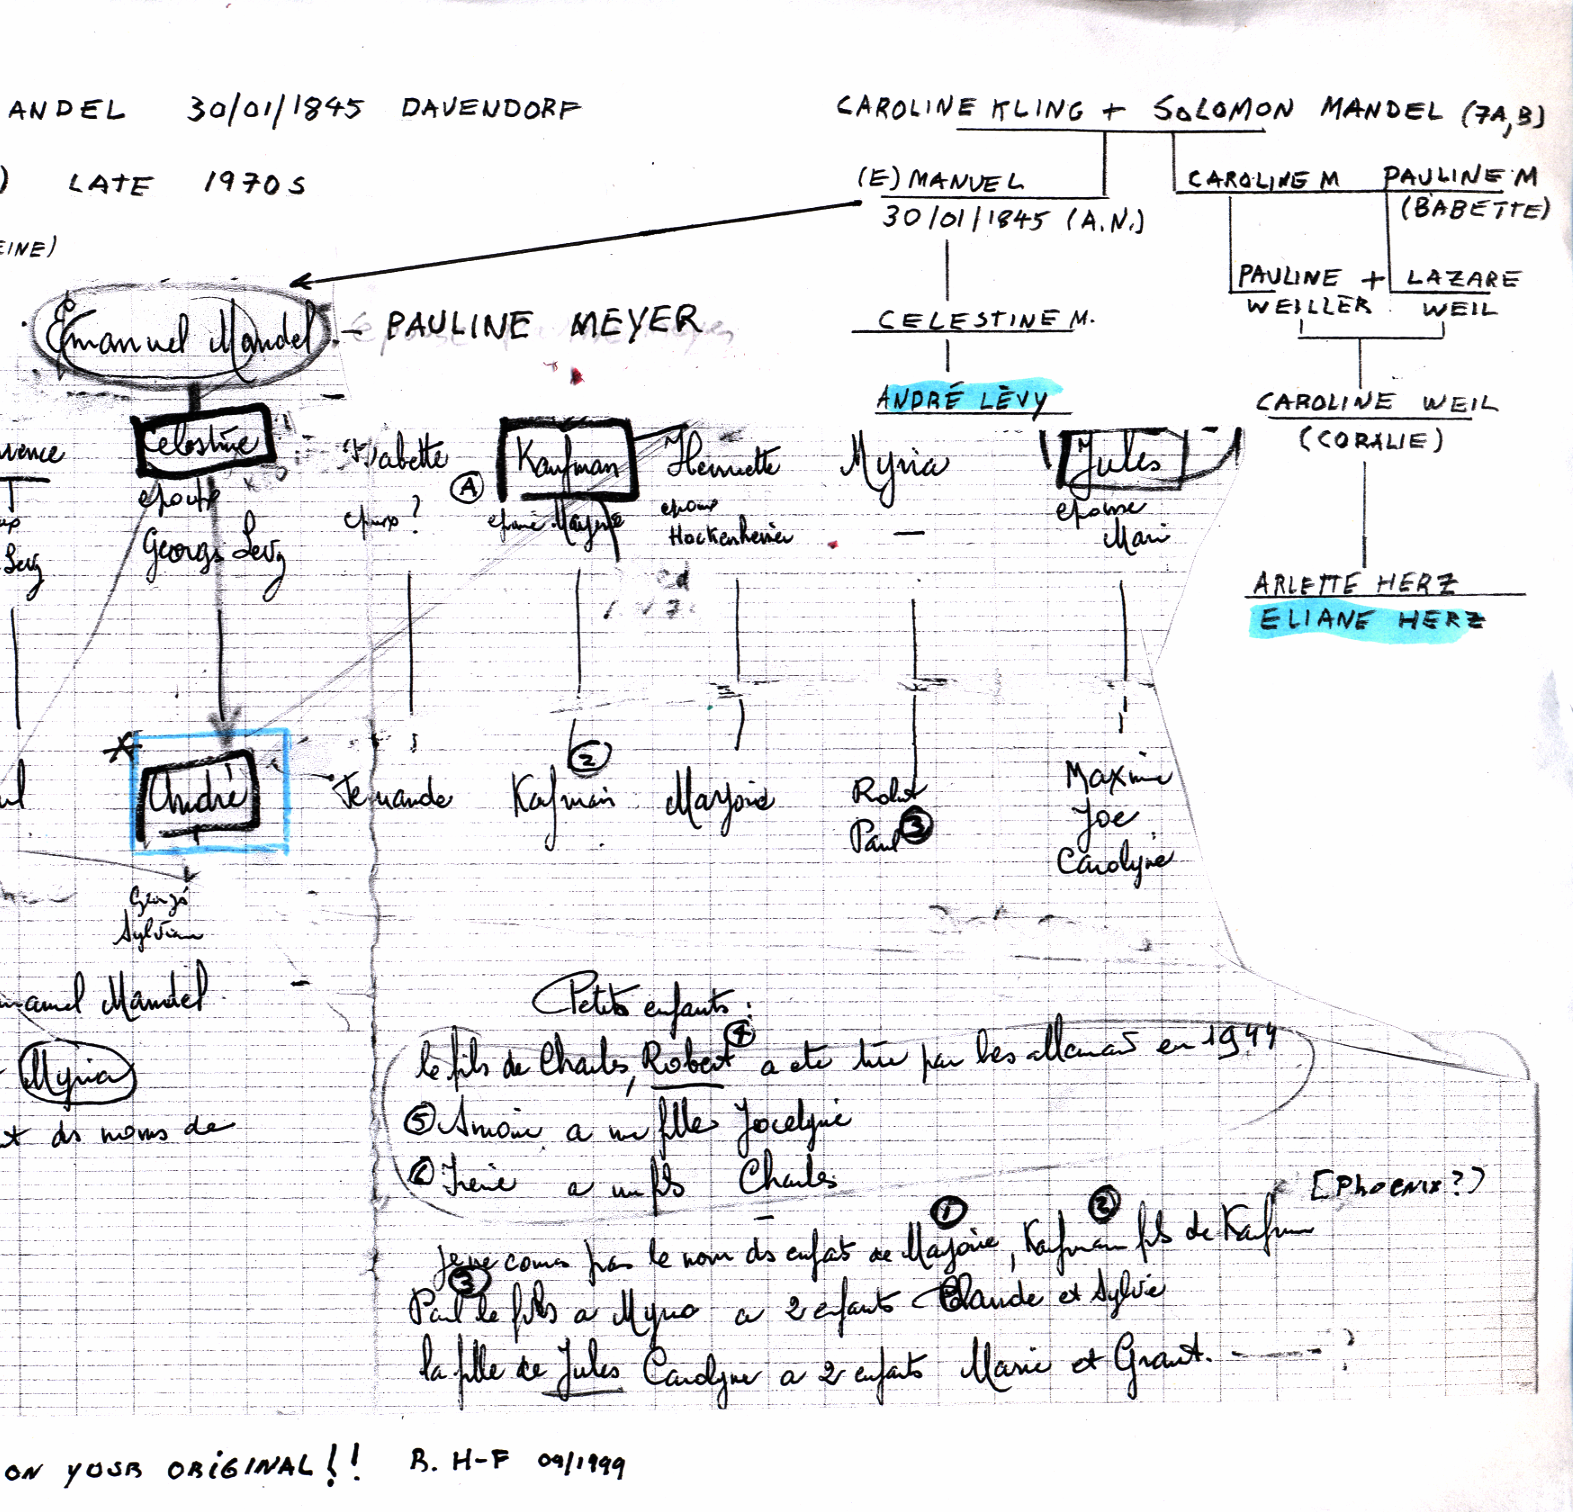 ANDEL 30/01/1845 DAVENDORF
CAROLINE KLING + SOLOMON MANDEL (7A,B)
) LATE 1970S
(E) MANUEL
CAROLINE M PAULINE M
30/01/1845 (A.N.)
(BABETTE)
EINE)
PAULINE + LAZARE
WEILLER WEIL
Emanuel Mandel - PAULINE MEYER
CELESTINE M.
ANDRÉ LÈVY
CAROLINE WEIL
(CORALIE)
Celestine
Kaufman Henriette Myria Jules
A
epouse
epoux ?
epoux
Hockenheimer
—
epouse
Georges Levy
ARLETTE HERZ
ELIANE HERZ
*
2
André
Kaufman Marjorie
Robert
Paul 3
Maxime
Joe
Carolyne
Georges
Sylvian
manuel Mandel
Petits enfants :
4
le fils de Charles, Robert a ete tué par les allemands en 1944
Myria
5 a une fille Jocelyne
t ds noms de
6 Irene a un fils Charles
[PHOENIX?)
1 2
je ne connais pas le nom ds enfats de Marjorie, Kaufman fils de Kaufman
3
Paul le fils a Myria a 2 enfants Claude et Sylvie
la fille de Jules Carolyne a 2 enfants Marie et Grant. — ?
ON YOUR ORIGINAL!! R. H-F 09/1999